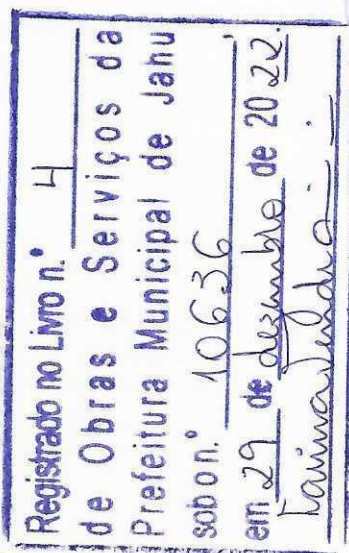 Registrado no Livro n.° 4
de Obras e Serviços da
Prefeitura Municipal de Jahu
sob o n.° 10636,
em 29 de dezembro de 2022.